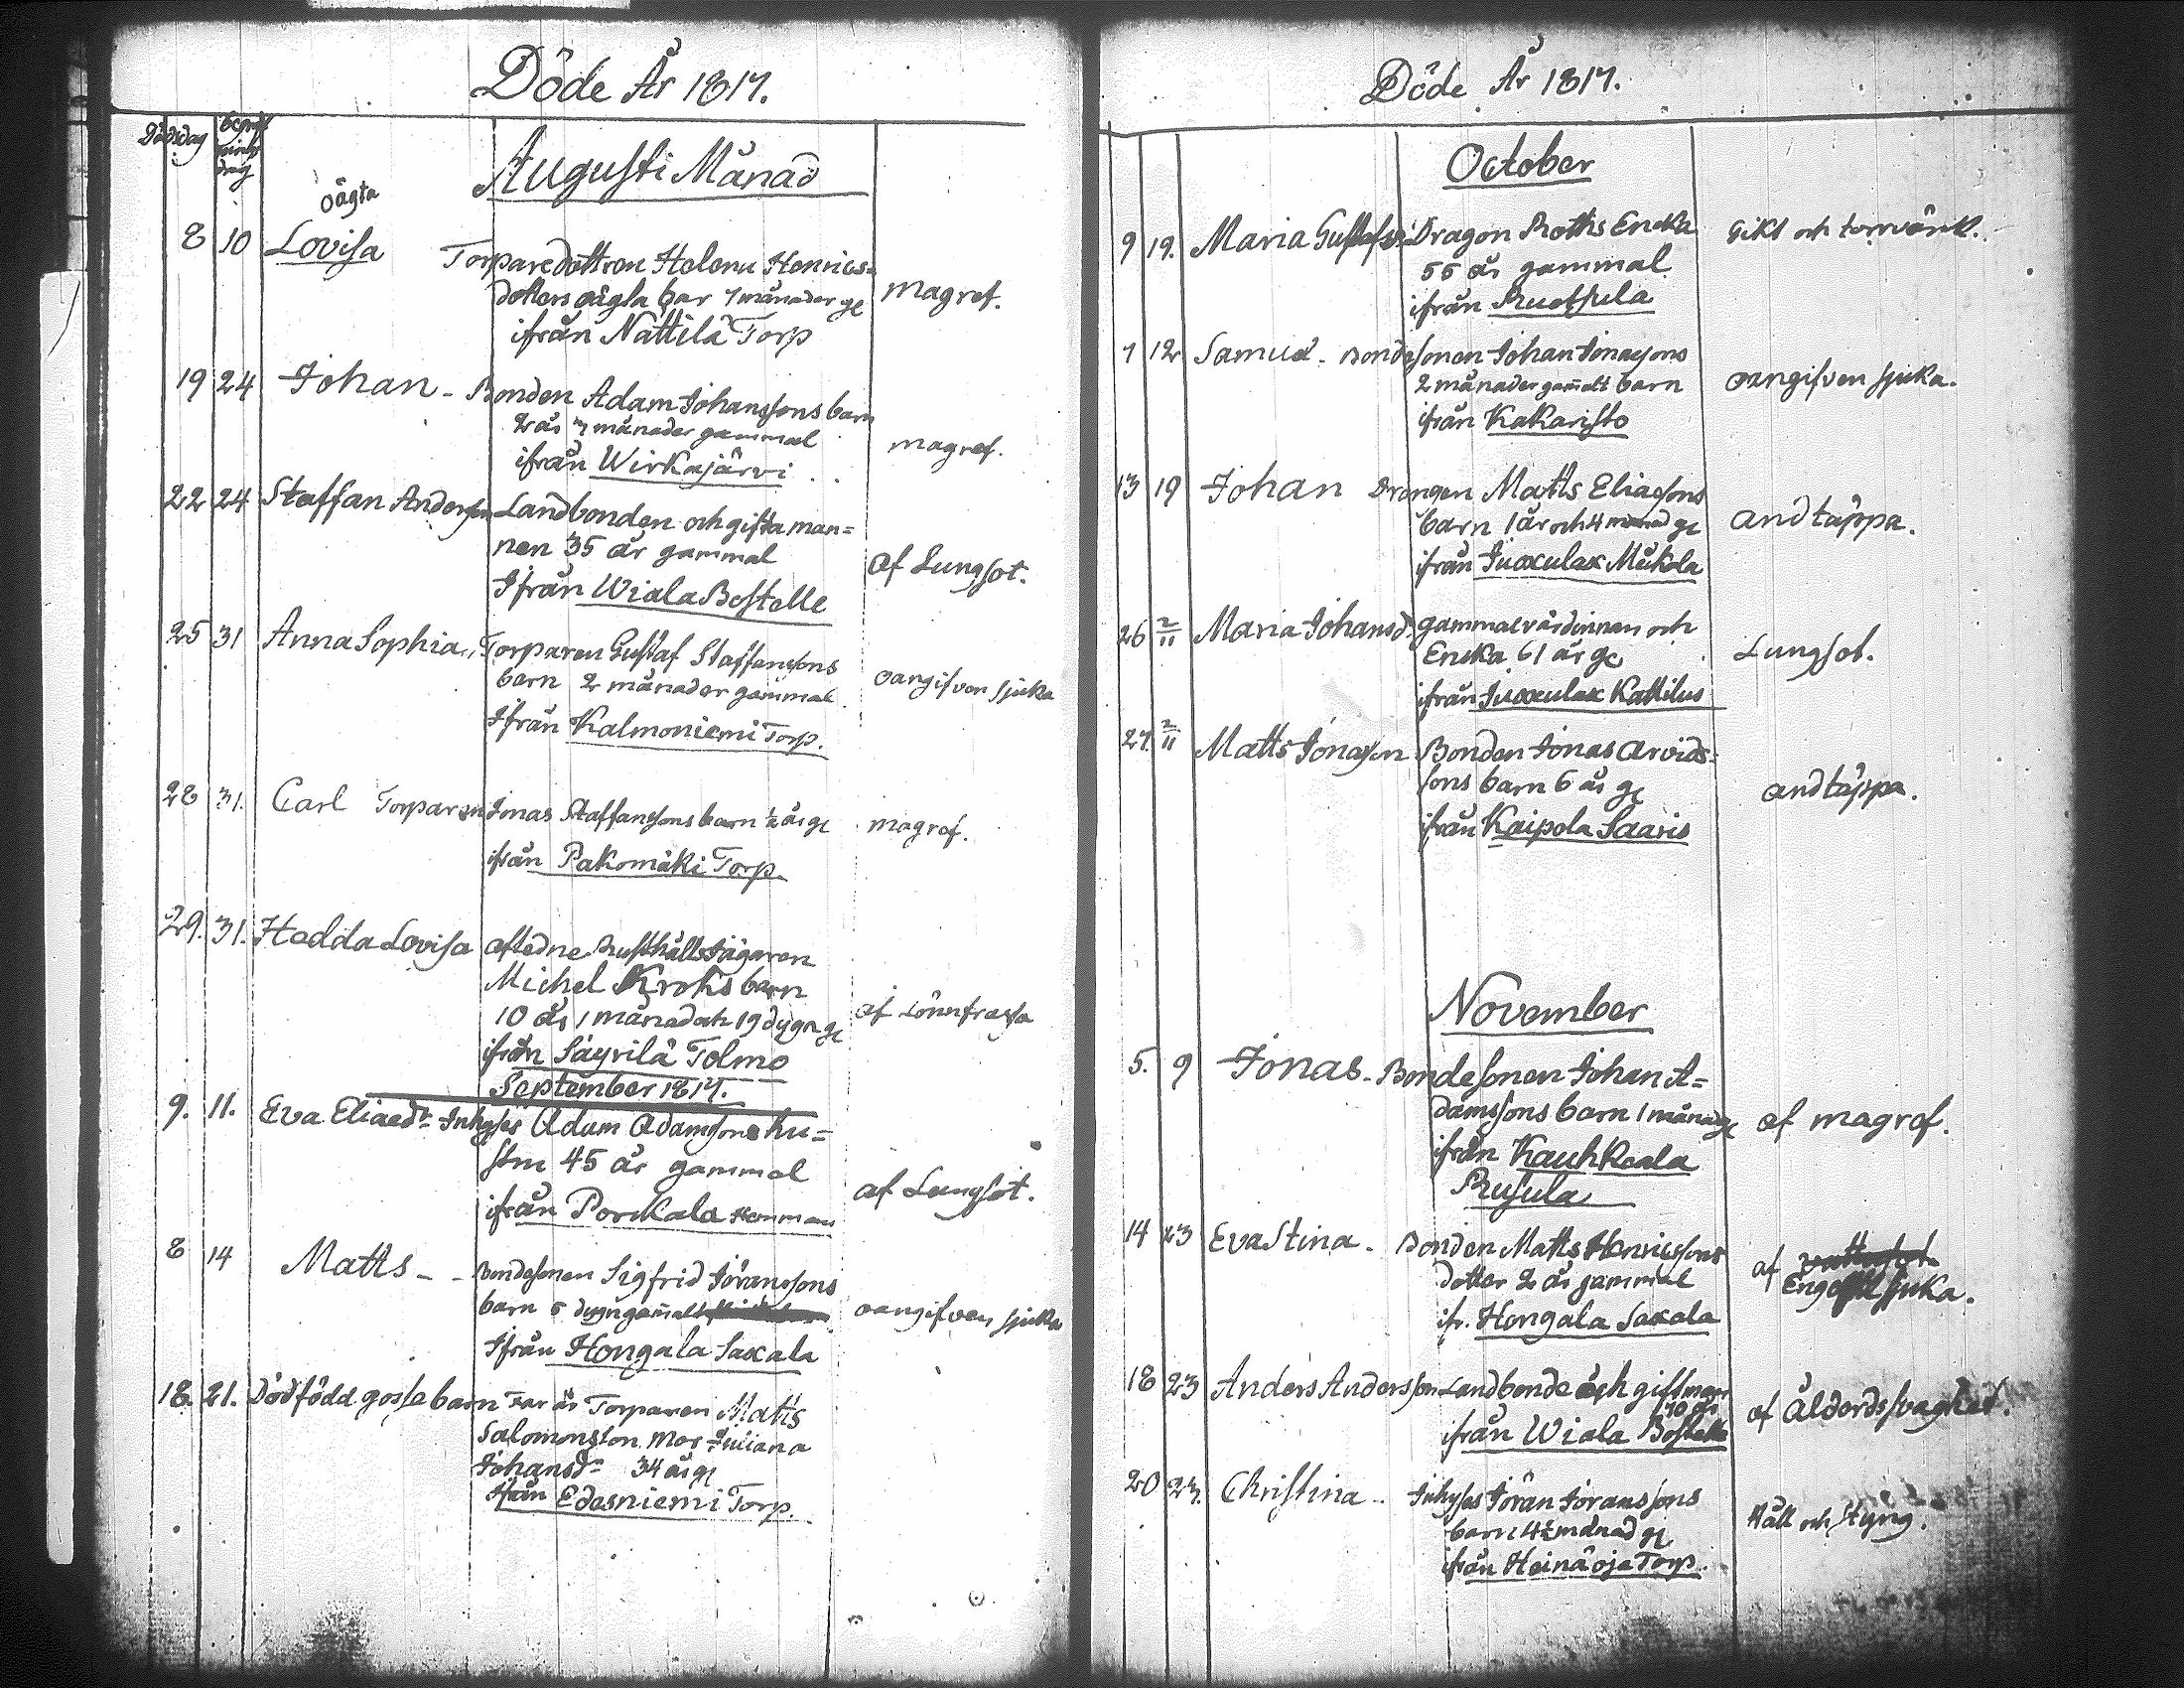 Döde År 1817.
Dödsdag
Augusti Månad
oägta
8 10 Lovisa Torparedottren Helena Henrics-
dotters oägta bar 7 månader gl
magref.
ifrån Nättilä Torp
19 24 Johan - Bonden Adam Johanssons barn
2 år 7 månader gammal
magref.
ifrån Wirkajärvi
22 24 Staffan Anderson Landbonden och gifta man=
nen 35 år gammal
af Lungsot.
Ifrån Wiala Bostelle
25 31 Anna Sophia Torparen Gustaf Staffanssons
barn 2 månader gammal
oangifven sjuka
Ifrån Kalmoniemi Torp.
28 31. Carl Torparen Jonas Staffanssons barn ½ år gl
magref.
ifrån Pakomäki Torp.
29. 31. Hedda Lovisa afledne Rusthålls Jägaren
Michel Kroks barn
10 år 1 månad och 19 dygn gl
af
ifrån Säyrilä Tolmo
September 1817.
9. 11. Eva Eliaedr Inhyses Adam Adamsons hu=
stru 45 år gammal
af Lungsot.
ifrån Porckala
8 14 Matts - - Bondesonen Sigfrid Jöranssons
barn 5 dygn gam̄alt
oangifven sjuka
Ifrån Hongala Saxala
18. 21. Dödfödd gosse barn Far är Torparen Matts
Salomonsson Mor Juliana
Johansdr 34 år gl
Ifrån Edesniemi Torp.
Döde År 1817.
October
9 19. Maria Gustafsd Dragon Roths Encka
55 år gammal
Gikt och torrvärk.
ifrån Ruotsula
7 12 Samuel - Bondesonen Johan Jonassons
2 månader gam̄alt barn
oangifven sjuka.
ifrån Kakaristo
13 19 Johan Drängen Matts Eliassons
barn 1 år och 4 månad gl
andtäppa.
ifrån Juoxulax Mickola
26 2/11 Maria Johansd. gammalvärdinnan och
Encka 61 år gl
Lungsot.
ifrån Juoxulax Kattilus
27. 2/11 Matts Jonasson Bonden Jonas Arvids=
sons barn 6 år gl
andtäppa.
ifrån Kaipola Saaris
November
5. 9 Jonas - Bondesonen Johan A=
damssons barn 1 månad gl
af magref.
ifrån Kauhkeala
Rusula
14 23 Eva Stina - Bonden Matts Henricssons
dotter 2 år gammal
af
Engelsk sjuka.
if. Hongala Saxala
18 23 Anders Andersson Landbonde och gift man
70 år
af Ålderdssvaghet.
ifrån Wiala Bostelle
20 23. Christina - Inhyses Jöran Joranssons
barn 4½ månad gl
Håll och Styng.
ifrån Heinäoja Torp.